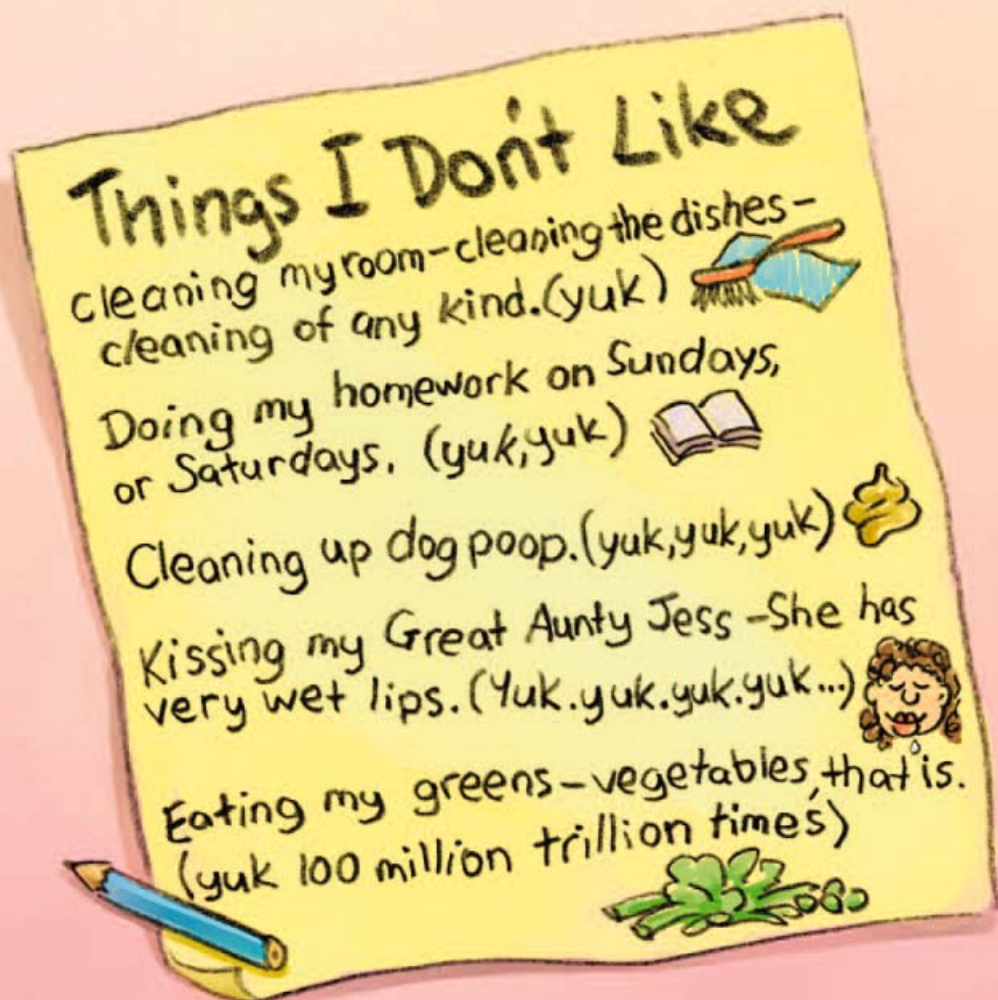 Things I Don't Like
cleaning my room-cleaning the dishes-
cleaning of any kind.(yuk)
Doing my homework on Sundays,
or Saturdays. (yuk,yuk)
Cleaning up dog poop.(yuk,yuk,yuk)
Kissing my Great Aunty Jess -She has
very wet lips.(Yuk.yuk.yuk.yuk...)
Eating my greens-vegetables,that is.
(yuk 100 million trillion times)